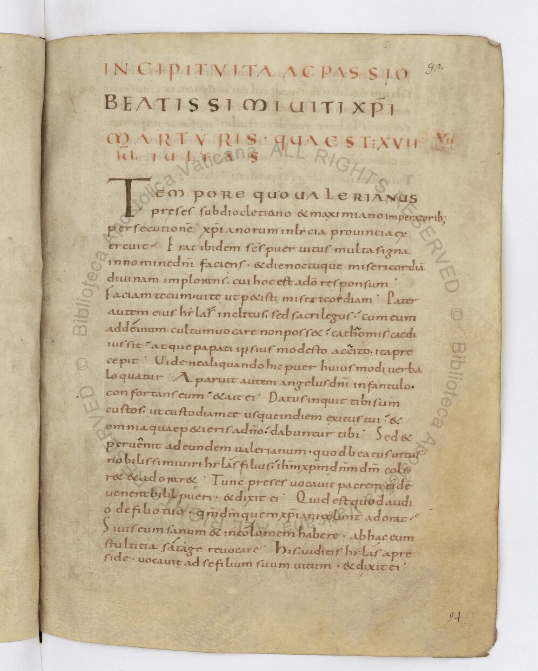 92
INCIPIT VITA AC PASSIO
BEATISSIMI UITI XPI
MARTYRIS · QUAE EST: XVII
KL IULIAS
TEMPORE QUO UALERIANUS
preses sub diocletiano & maximiano imperatorib;
persecutionē xpianorum in provincia ex
ercuit · Erat ibidem ses puer vitus multa signa
in nomine dni faciens · & die noctuque misericordiā
divinam implorans; cui hoc est a do responsum
Faciam tecum vite ut petisti misericordiam Pater
autem eius hylas inclitus; sed sacrilegus; cum eum
ad demum cultum vocare non posset cathomis cædi
iussit · atque papati ipsius modesto accito ita pre
cepit Vide ne aliquando hic puer huius modi verba
loquatur Aparuit autem angelus dni infantulo ·
confortans eum & ait ei Datus inquit tibi sum
custos; ut custodiam te usque in diem exitus tui · &
omnia quæ petieris a dno · dabuntur tibi Sed &
pervenit ad eundem valerianum · quod beatus vitus
nobilissimi viri hylas filius; ihm xpm dnm dm cole
r& & ador& Tunc preses vocavit patrem eidē
venerabilis pueri · & dixit ei Quid est quod audi
o de filio tuo · qm dm quem xpiani colunt adorat
Si vis eum sanum & incolomem habere · ab hac eum
stultitia satage revocare His auditis hylas a pre
side · vocavit ad se filium suum vitum · & dixit ei
94
© Biblioteca Apostolica Vaticana ALL RIGHTS RESERVED © Biblioteca Apos